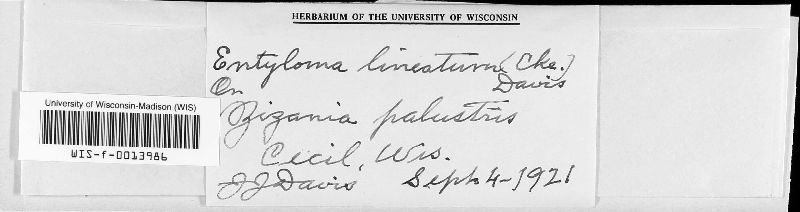 HERBARIUM OF THE UNIVERSITY OF WISCONSIN
Entyloma lineatum (Cke.)
Davis
On
Zizania palustris
Cecil, Wis.
JJDavis Sept. 4-1921
University of Wisconsin-Madison (WIS)
WIS-f-0013986